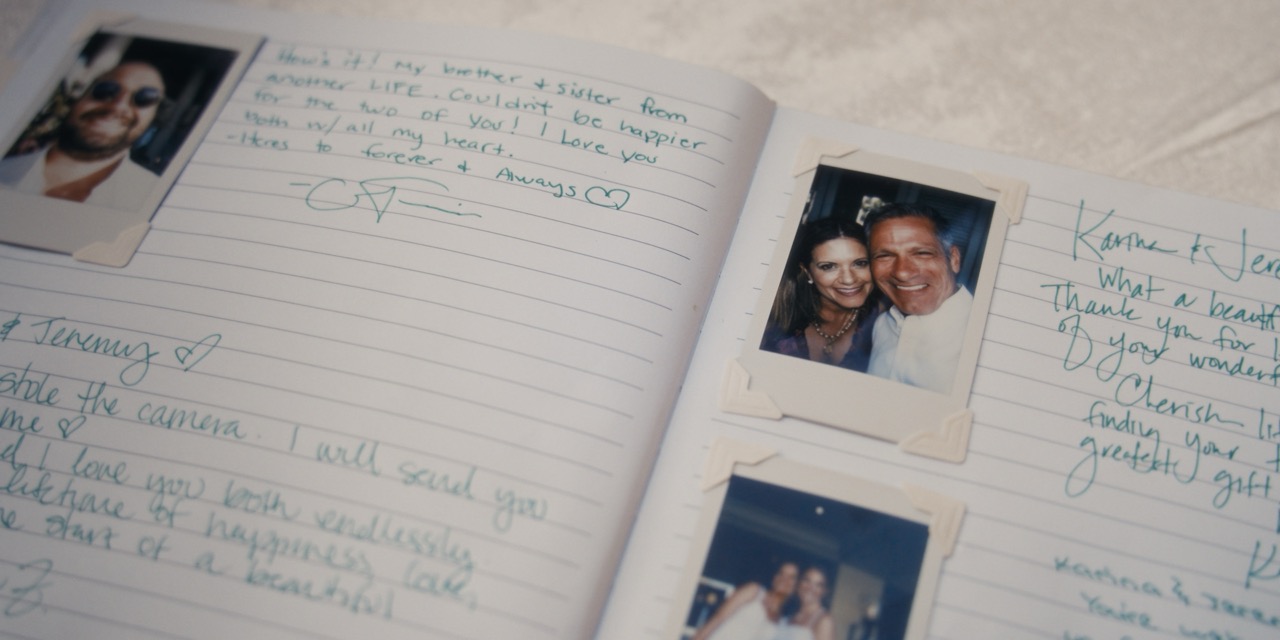 How's it! My brother & sister from
another LIFE. Couldn't be happier
for the two of you! I Love you
Both w/ all my heart.
-Heres to forever & Always ♡
& Jeremy ♡
stole the camera. I will send you
me ♡
I love you both endlessly.
lifetime of happiness, love,
start of a beautiful
Karina & Jere
What a beaut
Thank you for
of your wonderf
Cherish li
finding your
greatest gift
Karina &
You're